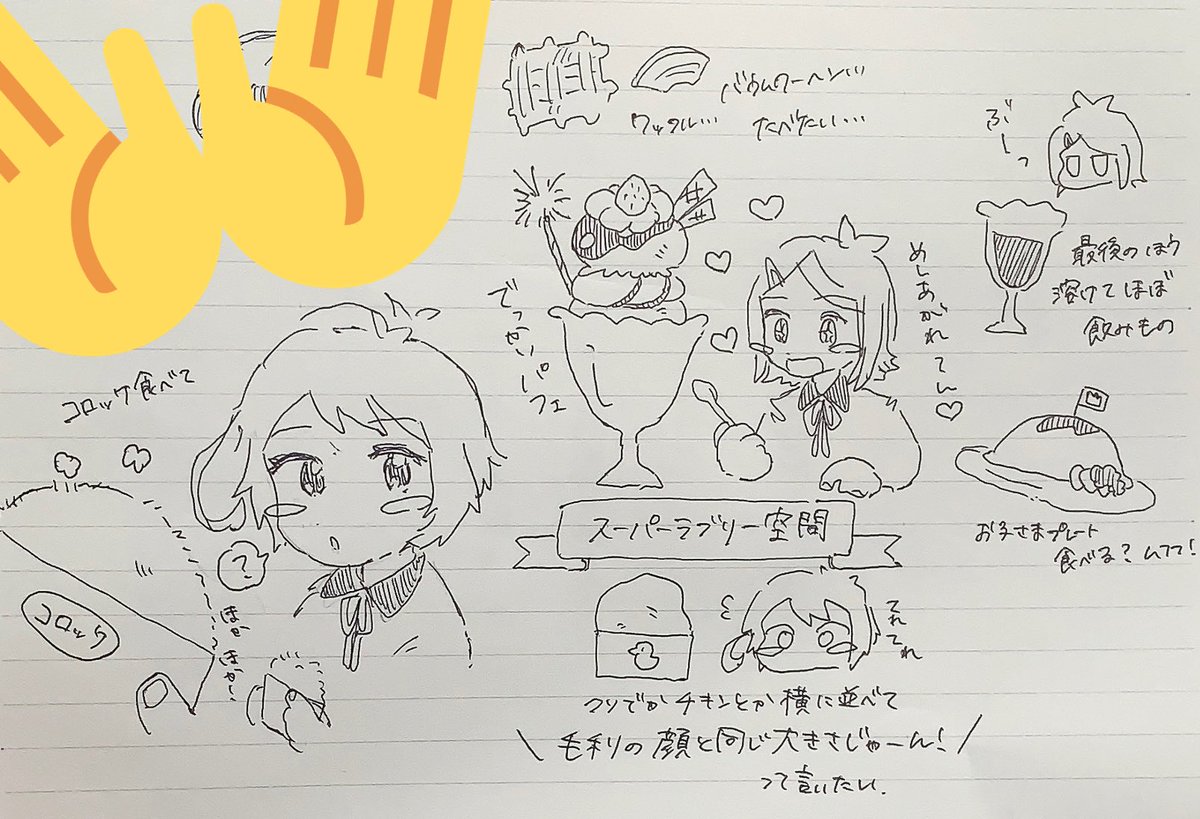 ばぁむクーヘン…
ワッフル…
たべたい…
ぷーっ
でっかいパフェ
めしあがれてん♡
最後のほう
溶けてほぼ
飲みもの
コロッケ食べて
?
コロッケ
ほか
ほか〜
スーパーラブリー空間
お子さまプレート
食べる?ムててて!
てれてれ
クソでかチキンとか横に並べて
毛利の顔と同じ大きさじゃーん!
って言いたい.